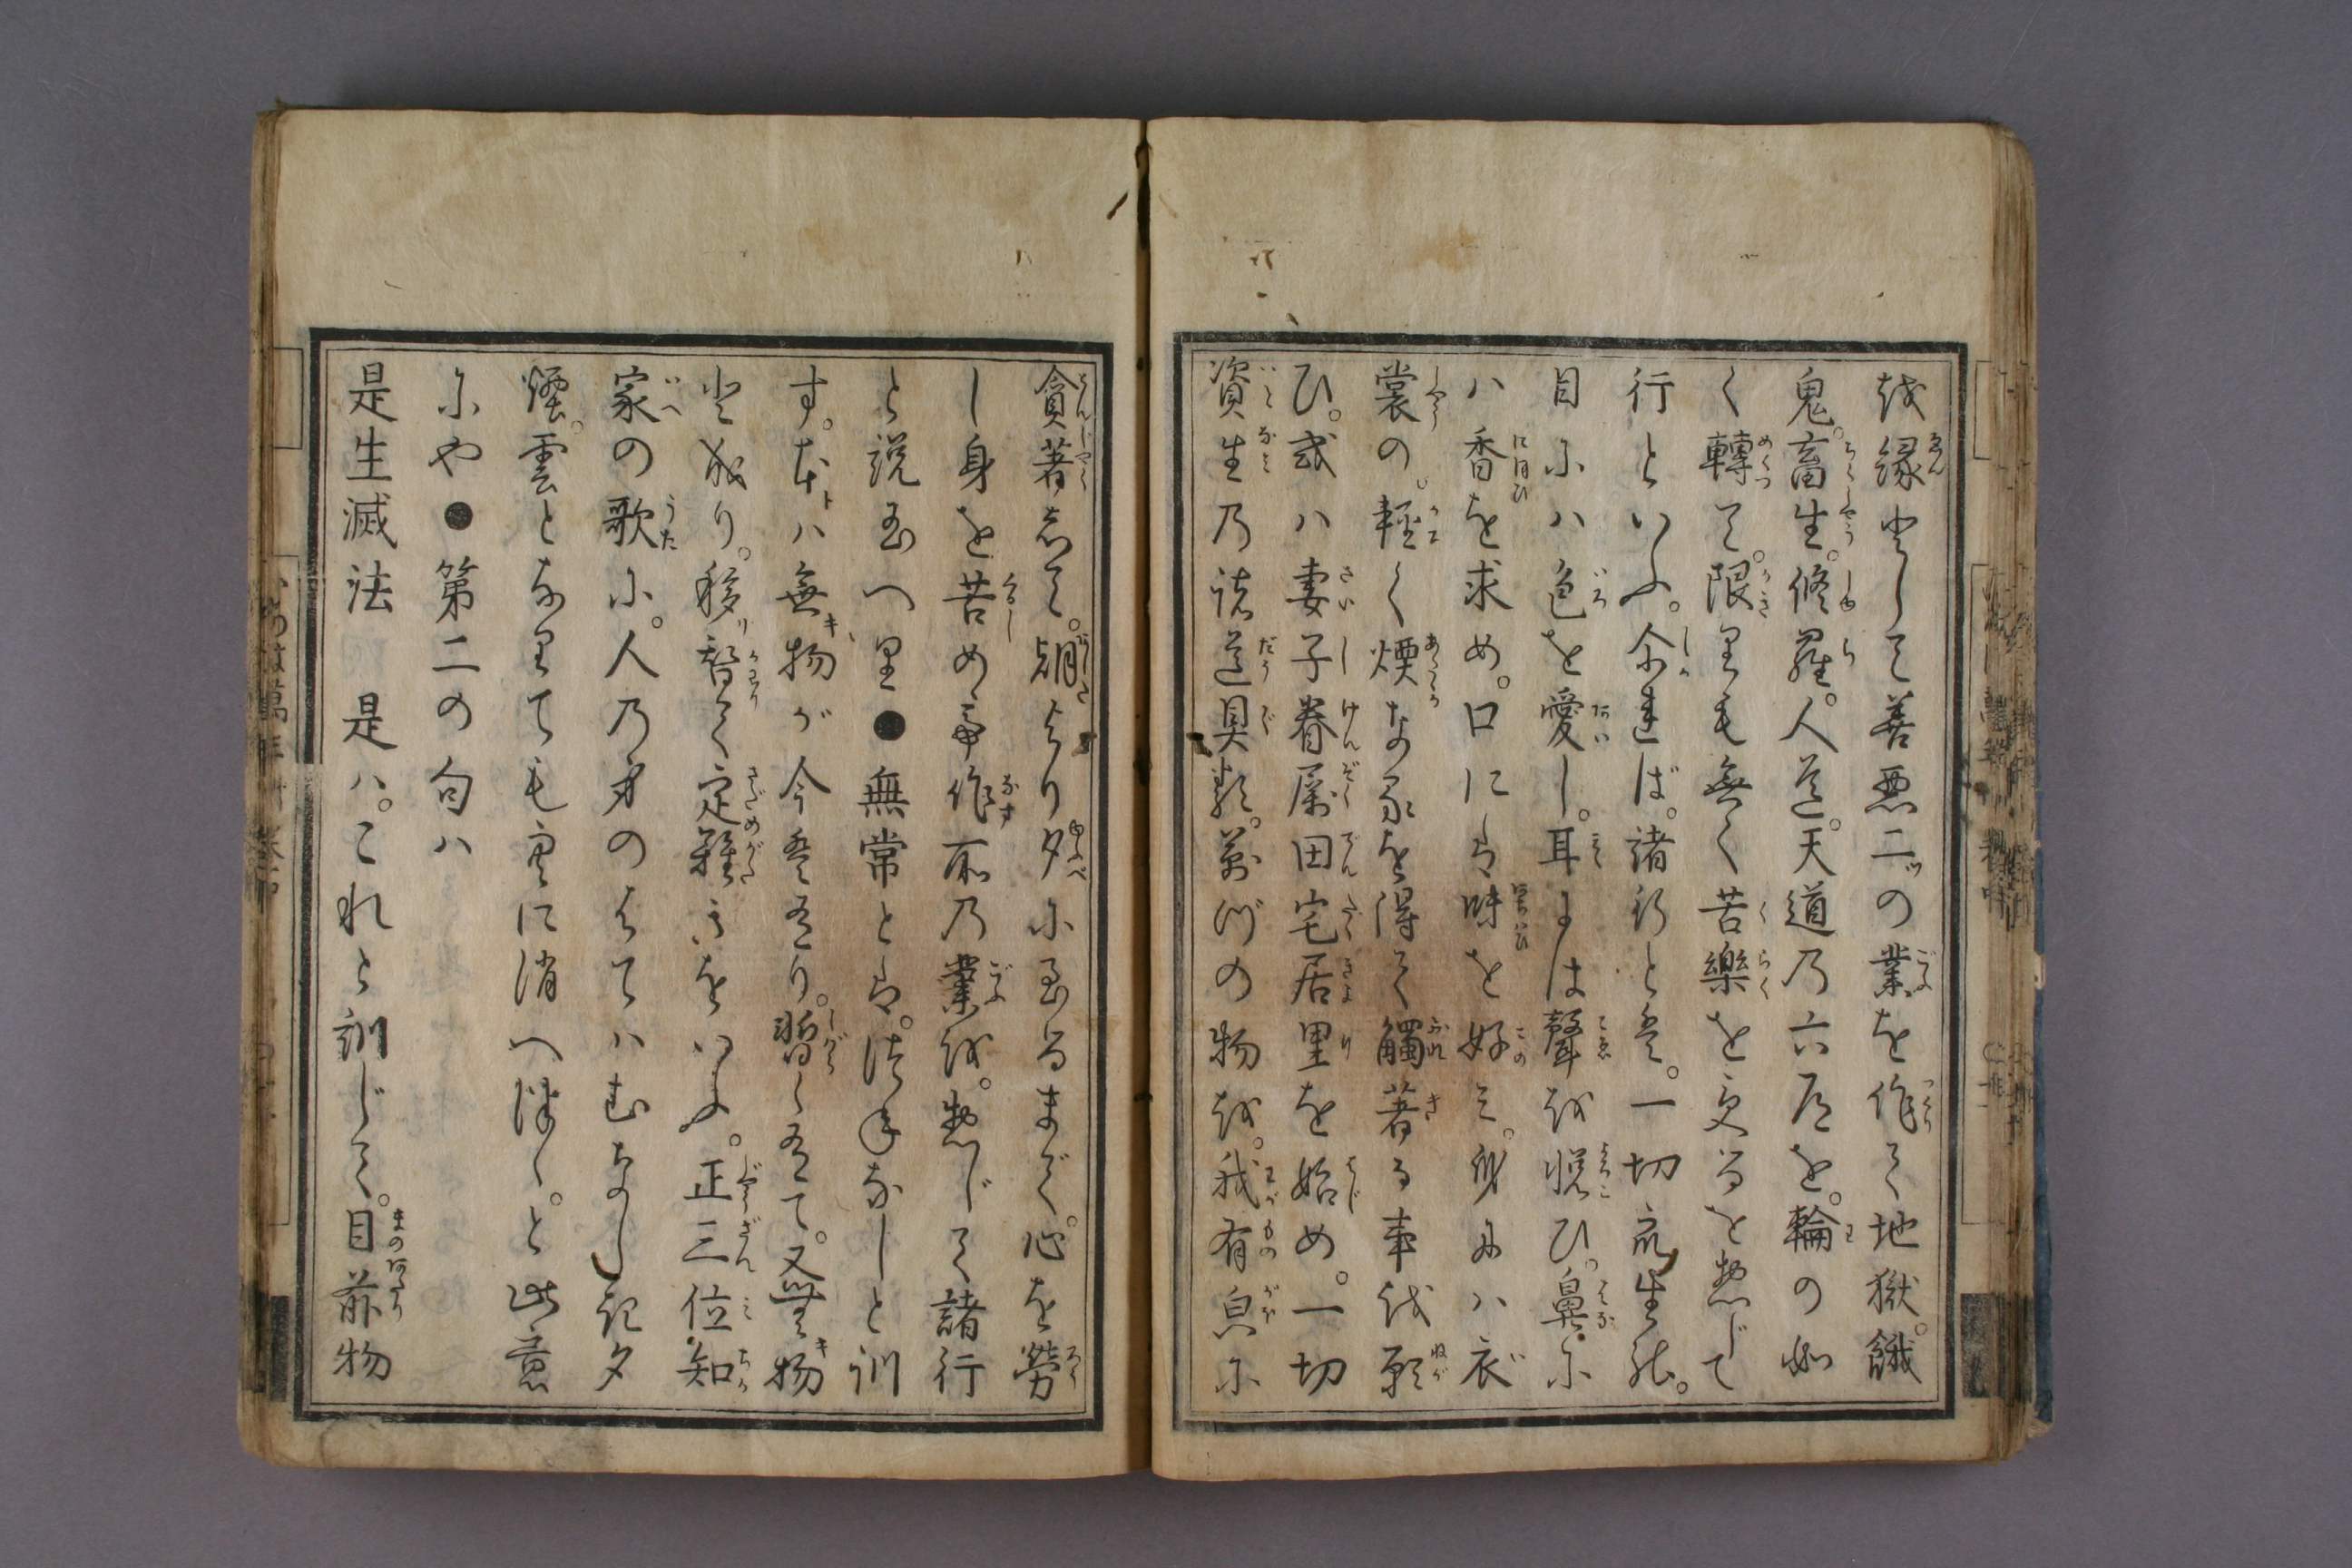 を縁として善悪二ッの業を作りて地獄。餓
鬼。畜生。修羅。人道。天道乃六道を。輪の如
く轉て。限里も無く苦樂を受るを惣じて
行といふ。尒連ば。諸行とは。一切衆生能。
目尓ハ色を愛し。耳には聲を悦ひ。鼻尓
ハ香を求め。口には味を好ミ。身にハ衣
裳の。軽く煖なるを得て觸著る事を願
ひ。或ハ妻子眷属田宅居里を始め。一切
資生乃諸道具類。萬づの物を。我有皃尓
貪著志て。朝より夕尓至るまで。心を勞
し身を苦め毎作所乃業を。惣じて諸行
と説玉へ里●無常とは。つねなしと訓
す。本トハ無キ物が今是有り。暫く有て。又無キ物
と成り。移リ替りて定難きをいふ。正三位知
家の歌尓。人乃身のはてハむなしき夕
煙。雲となりても空に消へ便く。と此意
尓や●第二の句ハ
是生滅法 是ハ。これと訓じて。目前物